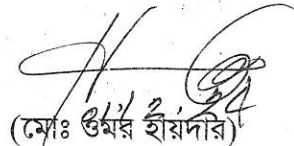 (মোঃ ওমর হায়দার)